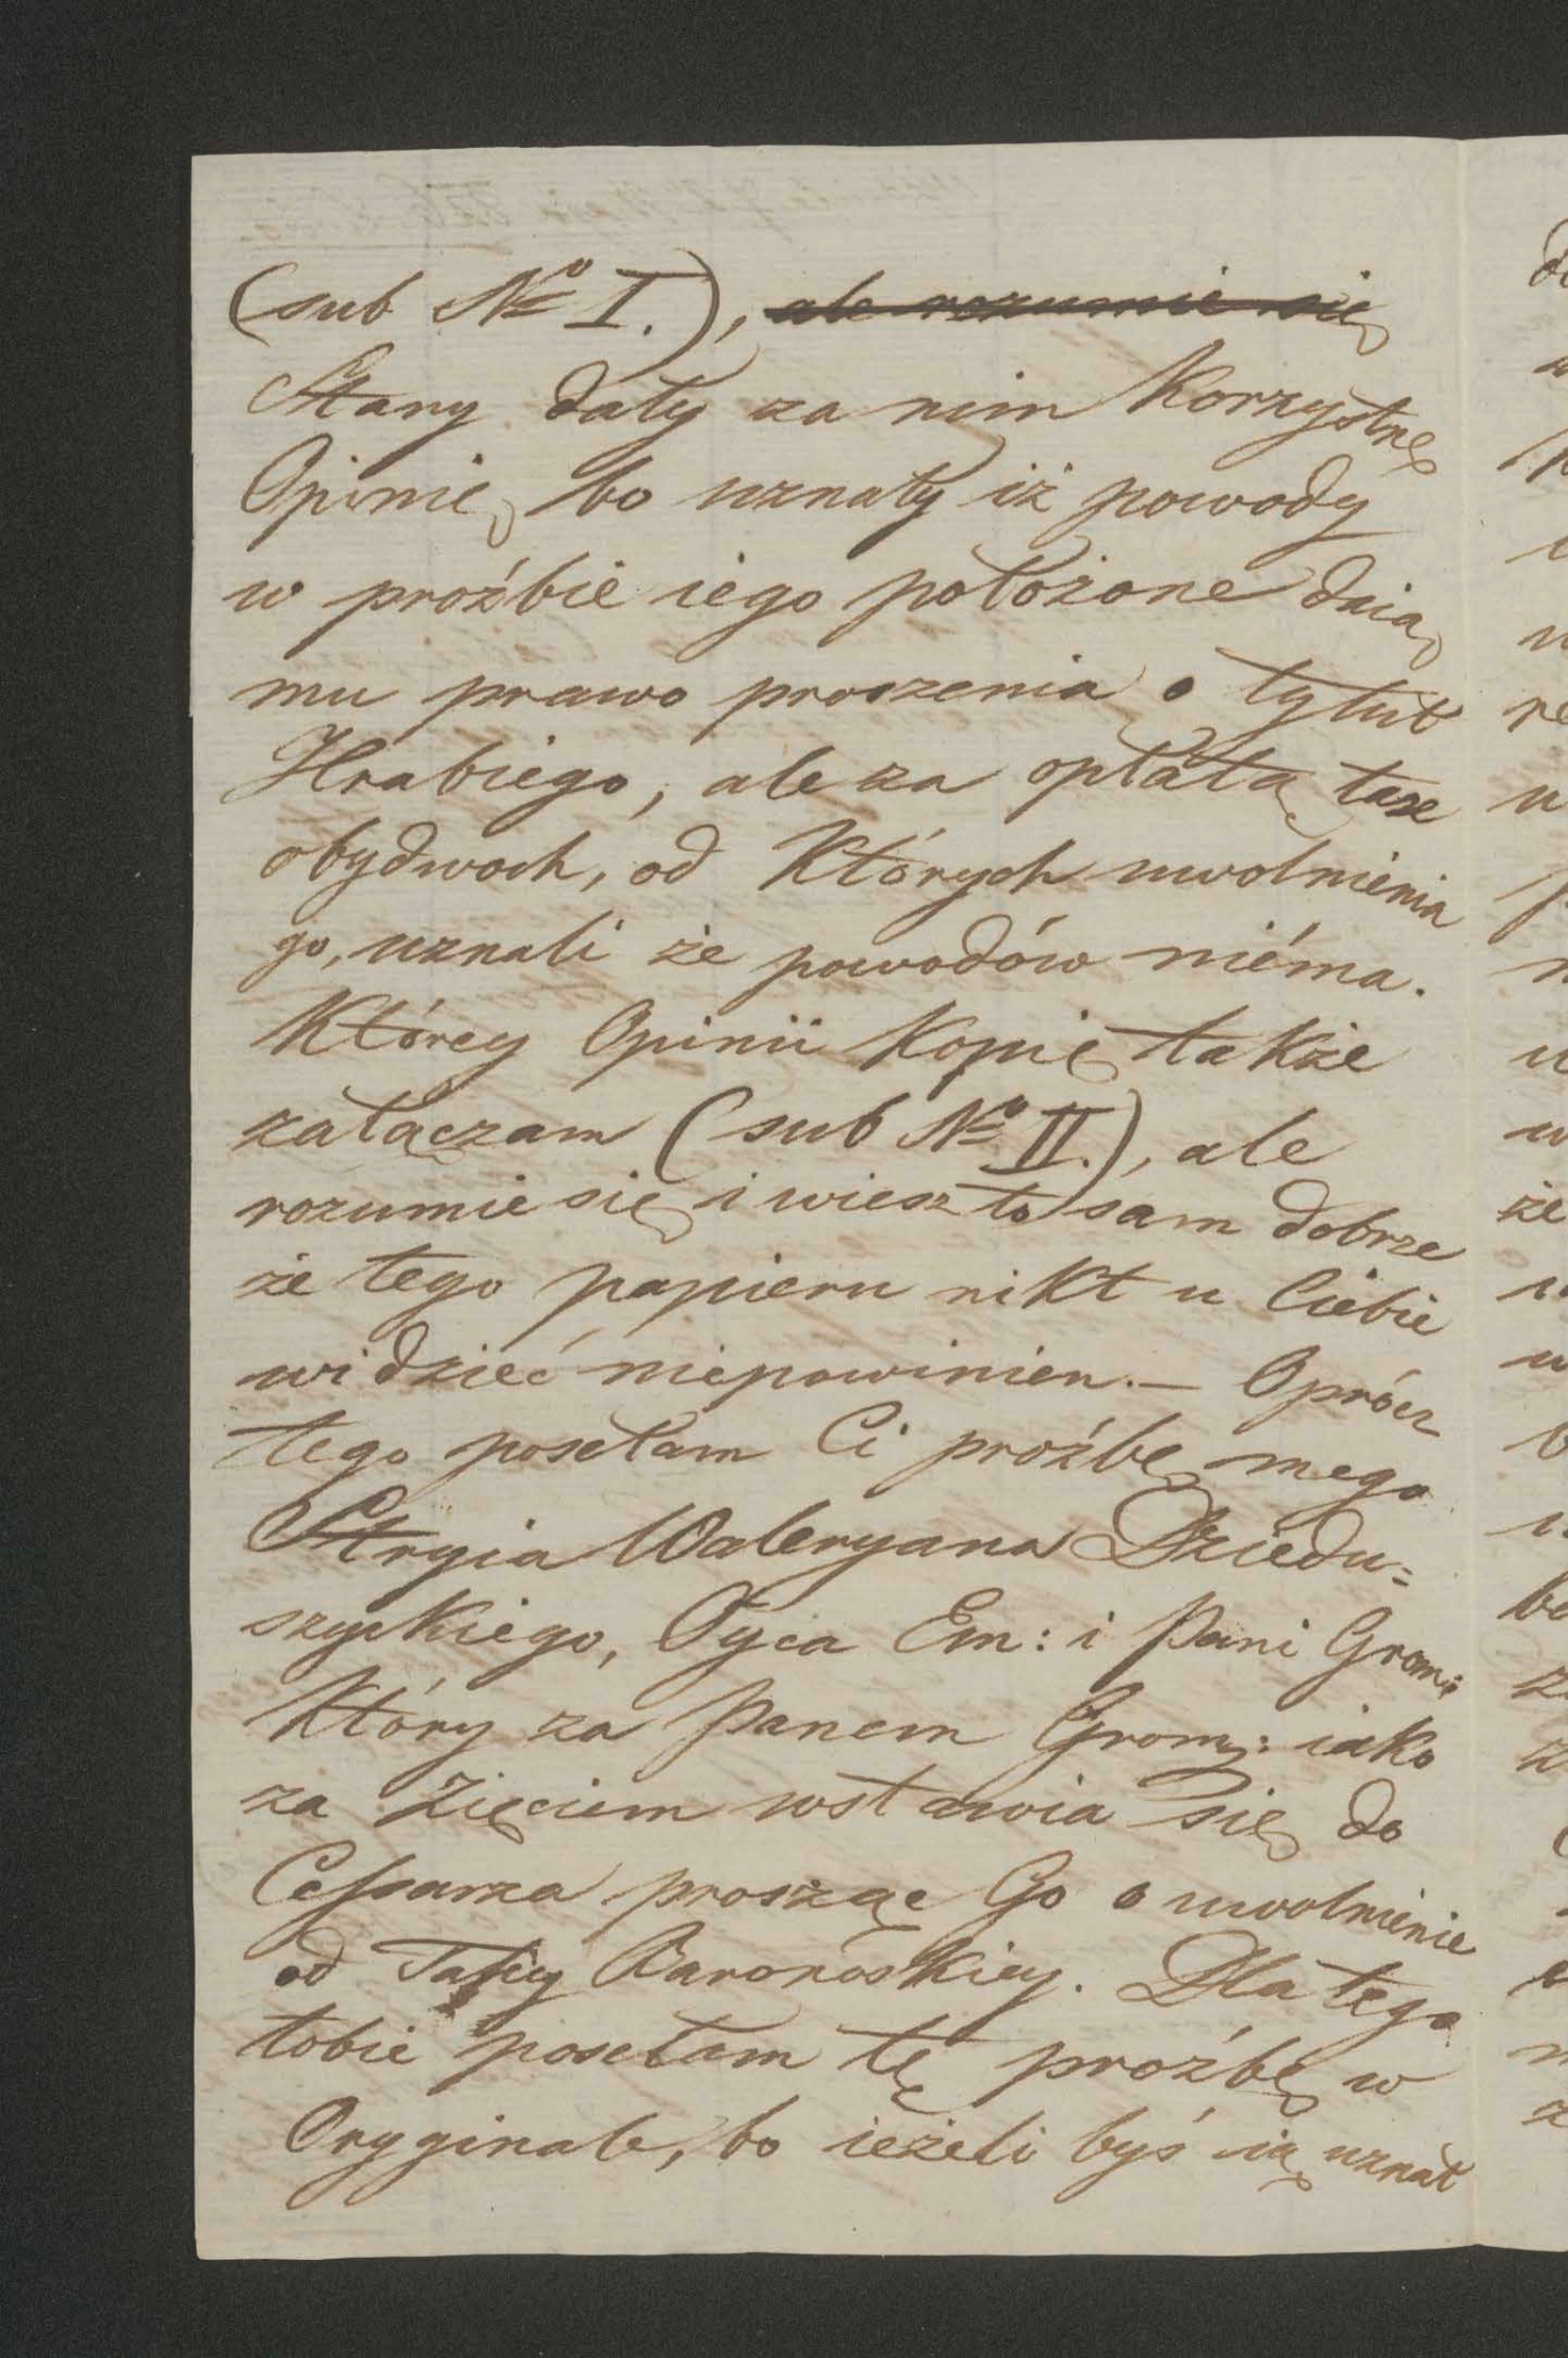 (sub No I.), ale rozumie się
Stany dały za nim Korzystnę
Opinię, bo uznały iż powody
w proźbie iego położone daią
mu prawo proszenia o tytuł
Hrabiego, ale za opłatą taxe
obydwoch, od Których uwolnienia
go, uznali że powodów niéma.
Którey Opinii Kopię także
załączam (sub No II.), ale
rozumie się i wiesz to sam dobrze
że tego papieru nikt u Ciebie
widzieć niepowinien. — Oprócz
tego posełam Ci proźbę mego
Stryia Waleryana Dziedu=
szyckiego, Oyca Em: i Pani Grom:
Który za Panem Grom: iako
za Zięciem wstawia się do
Cessarza prosząc Go o uwolnienie
od Taxy Baronoskiey. Dla tego
tobie posełam tę proźbę w
Oryginale, bo ieżeli byś ią uznał